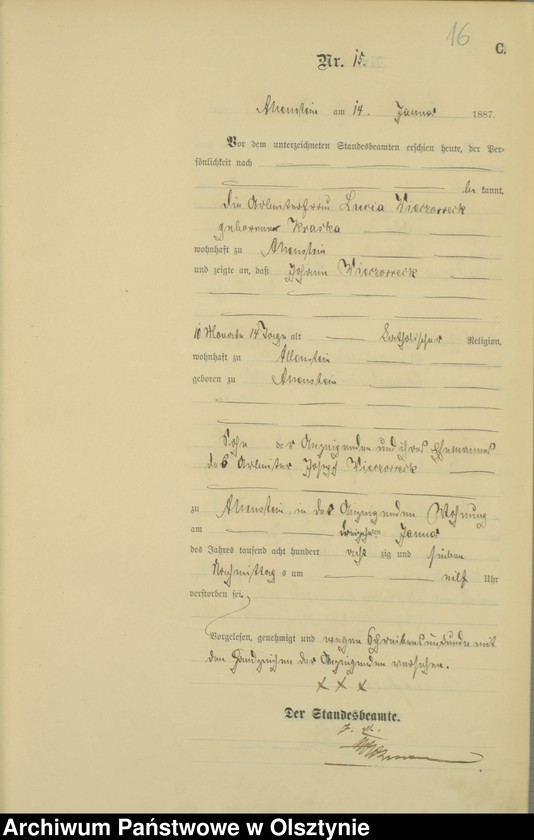 16
C.
Nr. 15.
Allenstein am 14. Januar 1887.
Vor dem unterzeichneten Standesbeamten erschien heute, der Per-
sönlichkeit nach
be kannt,
die Arbeiterfrau Lucia Wieczorreck
geborene Kraska
wohnhaft zu Allenstein
und zeigte an, daß Johann Wieczorreck
10 Monate 14 Tage alt katholischer Religion,
wohnhaft zu Allenstein
geboren zu Allenstein
Sohn der Anzeigenden und ihres Ehemannes
des Arbeiter Joseph Wieczorreck
zu Allenstein, in der Anzeigenden Wohnung
am dreizehnten Januar
des Jahres tausend acht hundert acht zig und sieben
Nachmittag s um elf Uhr
verstorben sei.
Vorgelesen, genehmigt und wegen Schreibensunkunde mit
den Handzeichen der Anzeigenden versehen.
x x x
Der Standesbeamte.
Archiwum Państwowe w Olsztynie